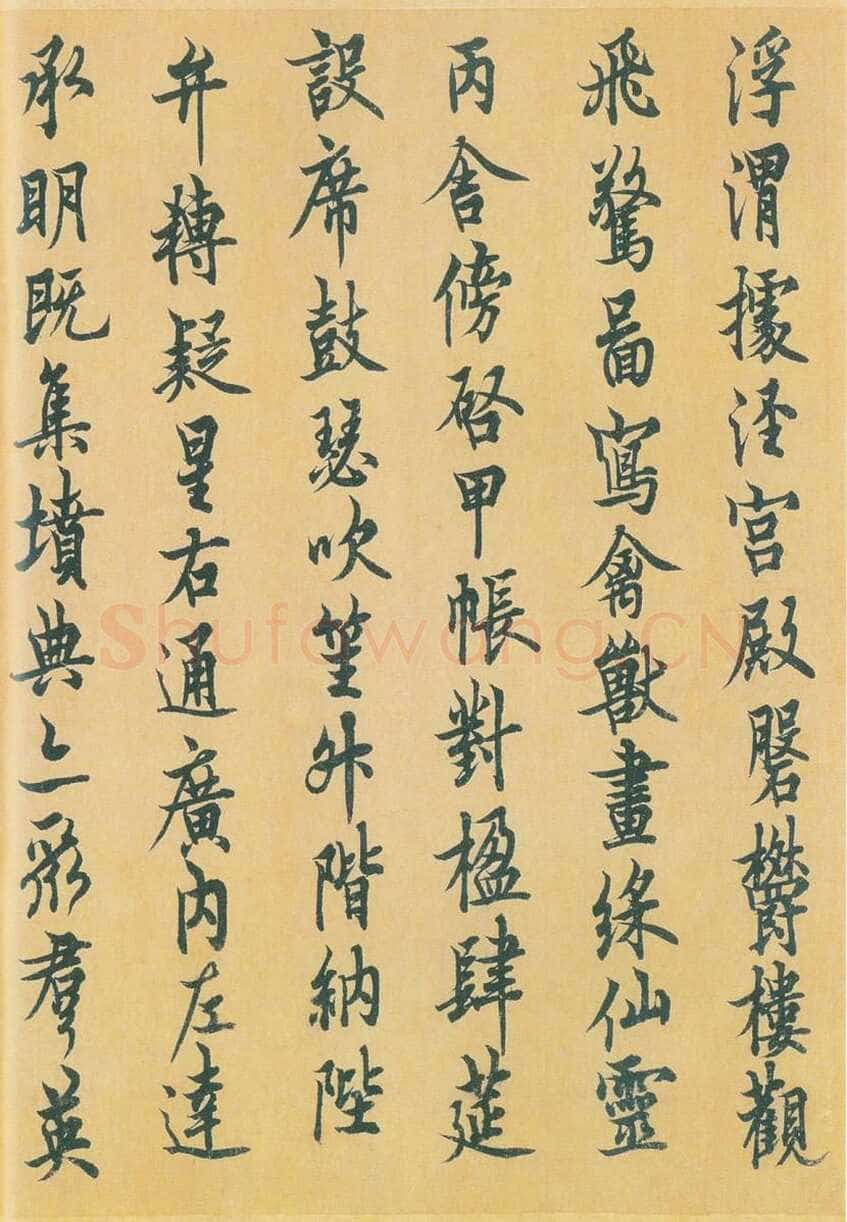 浮渭據涇宮殿磐欝樓觀
飛驚圖寫禽獸畫綵仙靈
丙舍傍啓甲帳對楹肆筵
設席鼓瑟吹笙升階納陛
弁轉疑星右通廣內左達
承明既集墳典亦聚羣英
Shufawang.CN